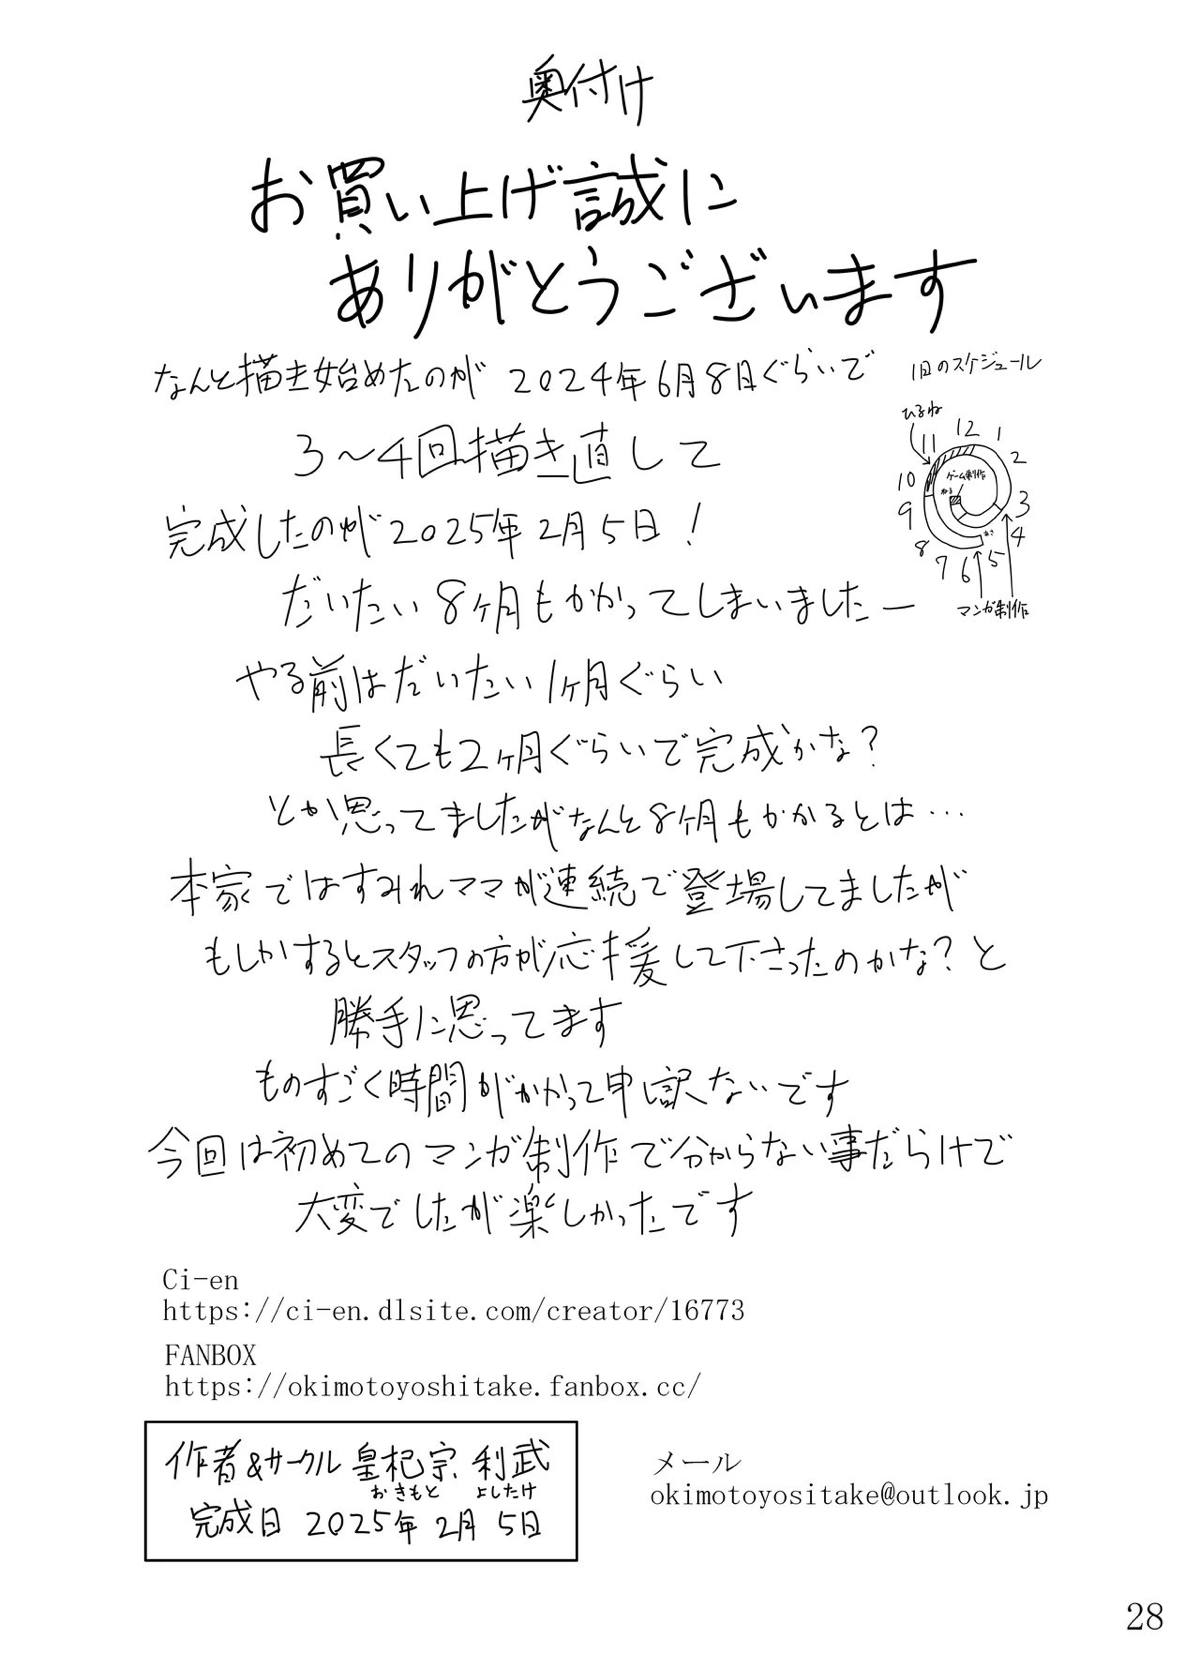 奥付け
お買い上げ誠に
ありがとうございます
なんと描き始めたのが 2024年6月8日ぐらいで
3〜4回描き直して
完成したのが2025年2月5日!
だいたい8ヶ月もかかってしまいましたー
やる前はだいたい1ヶ月ぐらい
長くても2ヶ月ぐらいで完成かな?
とか思ってましたがなんと8ヶ月もかかるとは…
本家ではすみれママが連続で登場してましたが
もしかするとスタッフの方が応援して下さったのかな?と
勝手に思ってます
ものすごく時間がかかって申し訳ないです
今回は初めてのマンガ制作で分からない事だらけで
大変でしたが楽しかったです
1日のスケジュール
ひるね
12 1 2 3 4 5 6 7 8 9 10 11
ゲーム制作
ねる
マンガ制作
Ci-en
https://ci-en.dlsite.com/creator/16773
FANBOX
https://okimotoyoshitake.fanbox.cc/
作者&サークル 皇杞宗 利武
おきもと よしたけ
完成日 2025年 2月 5日
メール
okimotoyositake@outlook.jp
28